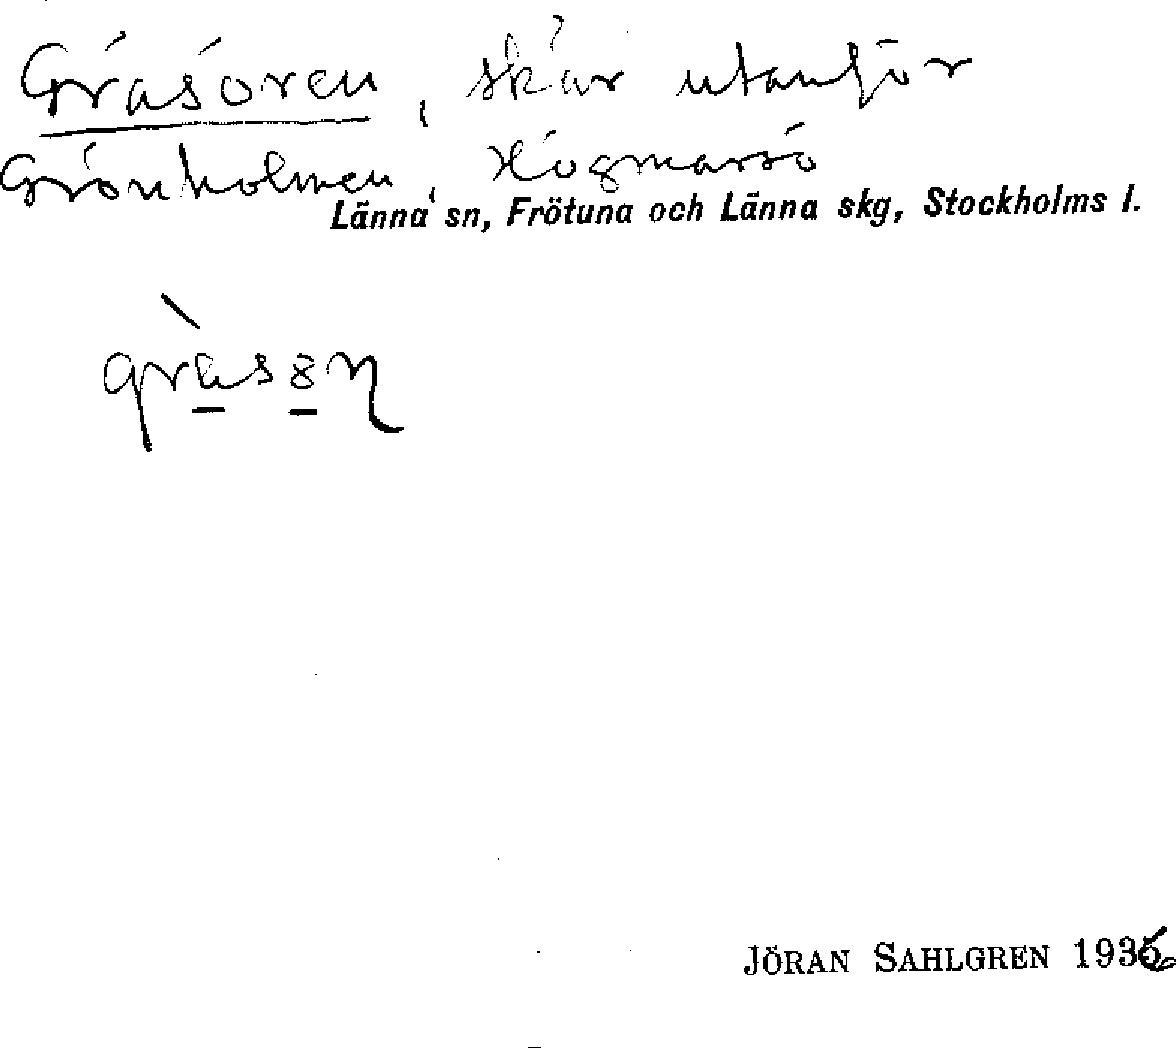 Gräsören, skär utanför
Grönholmen, Högmarsö
Länna sn, Frötuna och Länna skg, Stockholms l.
JÖRAN SAHLGREN 1936